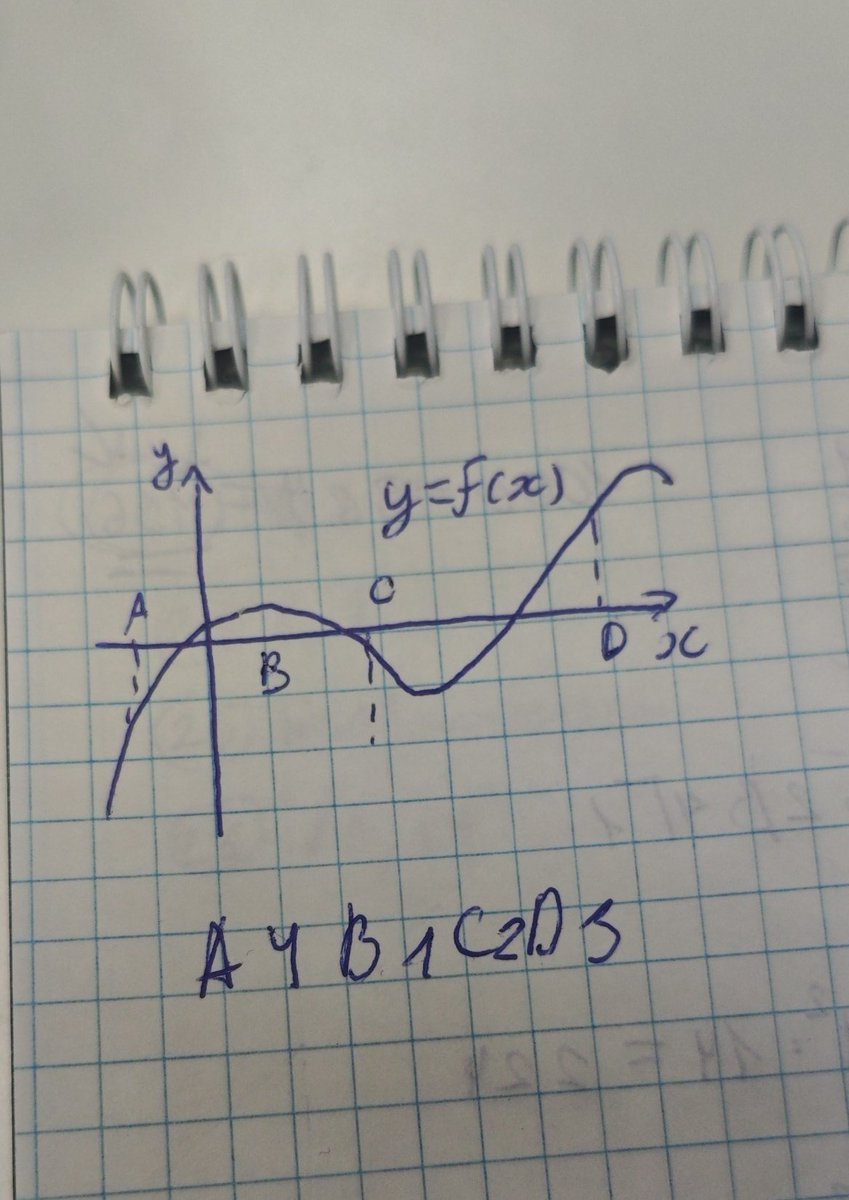 y
y=f(x)
A
C
B
D x
A 4 B 1 C 2 D 3